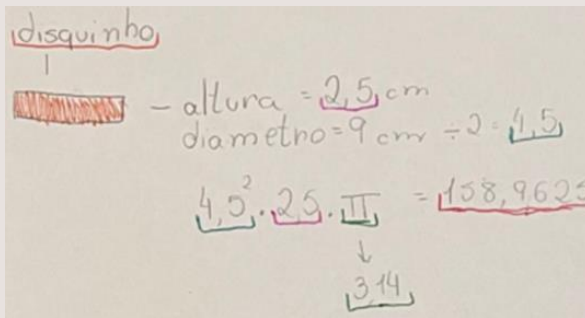 disquinho
- altura = 2,5 cm
diametro = 9 cm ÷ 2 = 4,5
4,5². 2,5 . π = 158,9625
↓
3,14